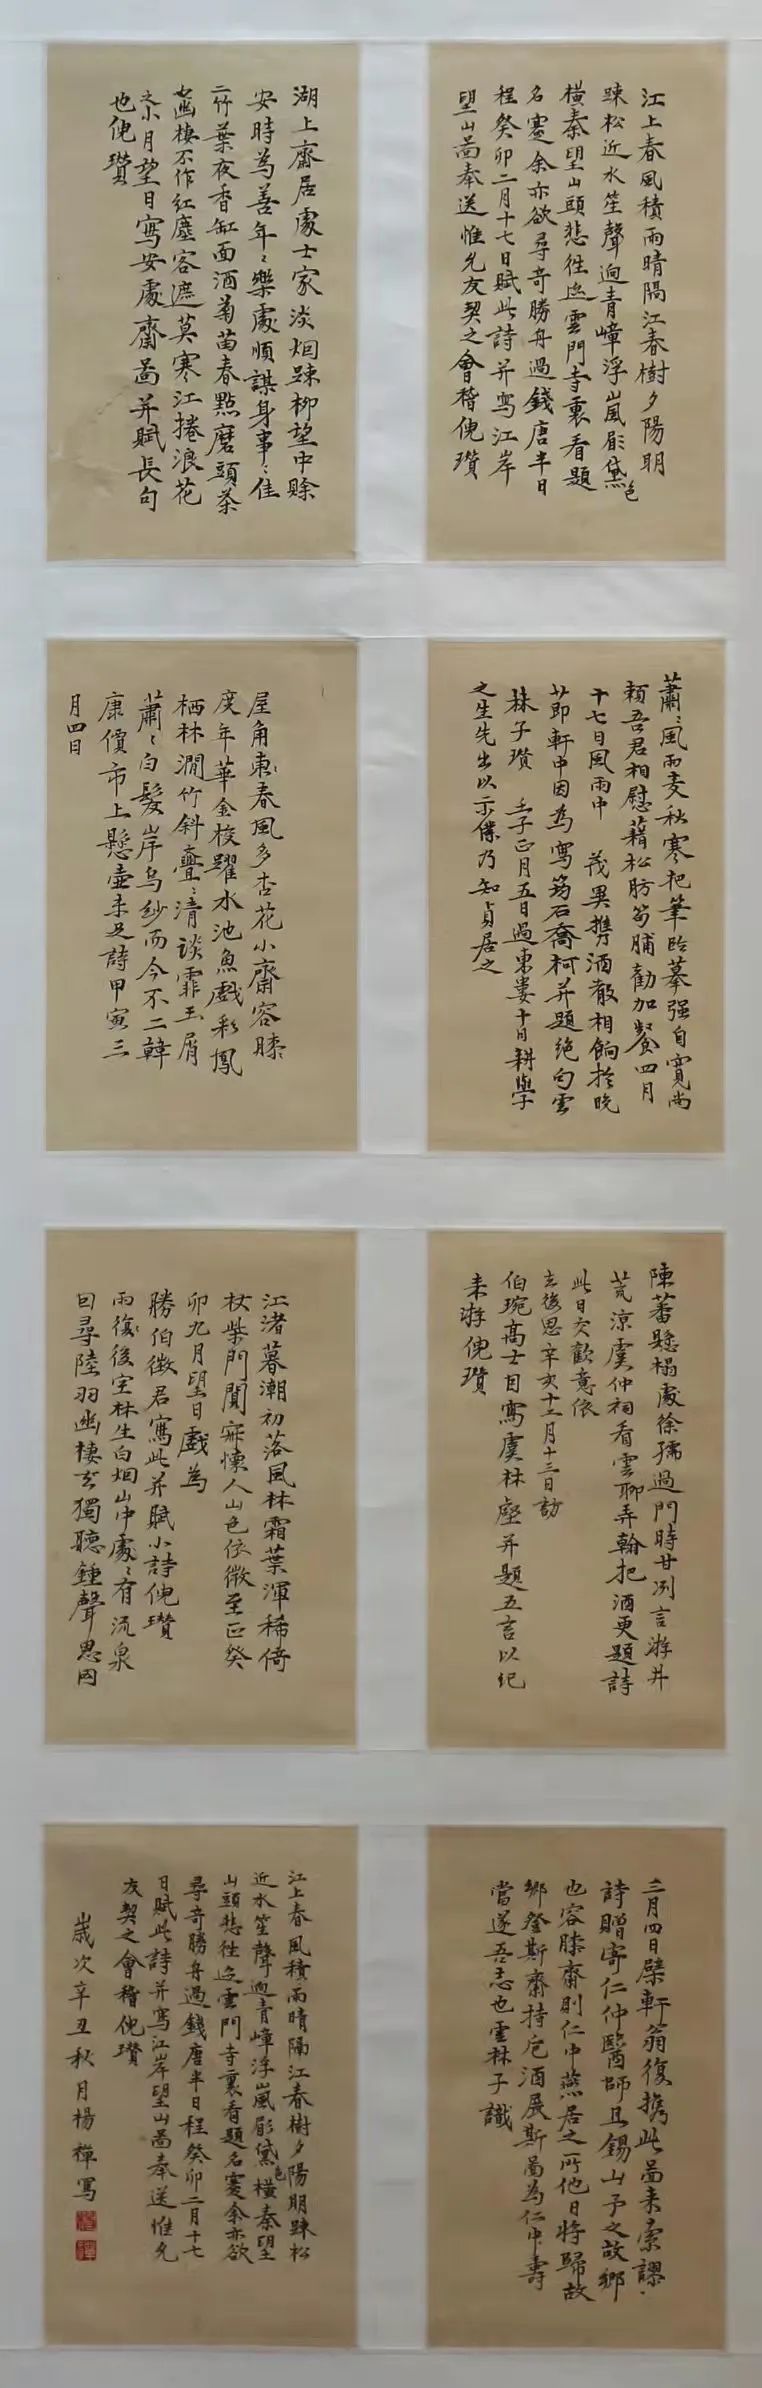 江上春風積雨晴隔江春樹夕陽明
疎松近水笙聲迥青嶂浮嵐㕑黛色
橫秦望山頭悲徃迹雲門寺裏看題
名蹇余亦欲尋奇勝舟過錢唐半日
程癸卯二月十七日賦此詩并寫江岸
望山啚奉送惟允友契之會稽倪瓚
湖上齋居處士家淡烟疎柳望中賖
安時為善年〻樂處順謀身事〻佳
竹葉夜香缸面酒菊苗春點磨頭茶
幽棲不作紅塵客遮莫寒江捲浪花
之小月望日寫安處齋啚并賦長句
也倪瓚
蕭〻風雨麦秋寒把筆臨摹強自寬尚
頼吾君相慰藉松肪筍脯勸加餐四月
十七日風雨中 茂異携酒殽相餉於晚
節軒中因為寫筠石喬柯并題絶句雲
林子瓚 壬子正月五日過東婁十日耕學
之生先出以示僕乃知貞居之
屋角東春風多杏花小齋容膝
度年華金梭躍水池魚戲彩鳳
栖林澗竹斜亹〻清談霏玉屑
蕭〻白髮岸烏紗而今不二韓
康價市上懸壺未足詩甲寅三
月四日
陳蕃懸榻處徐孺過門時甘冽言游井
荒涼虞仲祠看雲聊弄翰把酒更題詩
此日交歡意依
去後思辛亥十二月十三日訪
伯琬高士目寫虞林壑并題五言以紀
来游倪瓚
江渚暮潮初落風林霜葉渾稀倚
杖柴門闃寂懷人山色依微至正癸
卯九月望日戲為
勝伯徵君寫此并賦小詩倪瓚
雨後空林生白烟山中處〻有流泉
因尋陸羽幽棲去獨聽鍾聲思因
三月四日檗軒翁復携此啚来索謬
詩贈寄仁仲醫師且錫山予之故鄉
也容膝齋則仁中燕居之所他日將歸故
鄉登斯齋持巵酒展斯啚為仁中壽
當遂吾志也雲林子識
江上春風積雨晴隔江春樹夕陽明疎松
近水笙聲迥青嶂浮嵐㕑黛色橫秦望
山頭悲徃迹雲門寺裏看題名蹇余亦欲
尋奇勝舟過錢唐半日程癸卯二月十七
日賦此詩并寫江岸望山啚奉送惟允
友契之會稽倪瓚
歲次辛丑秋月楊樺寫